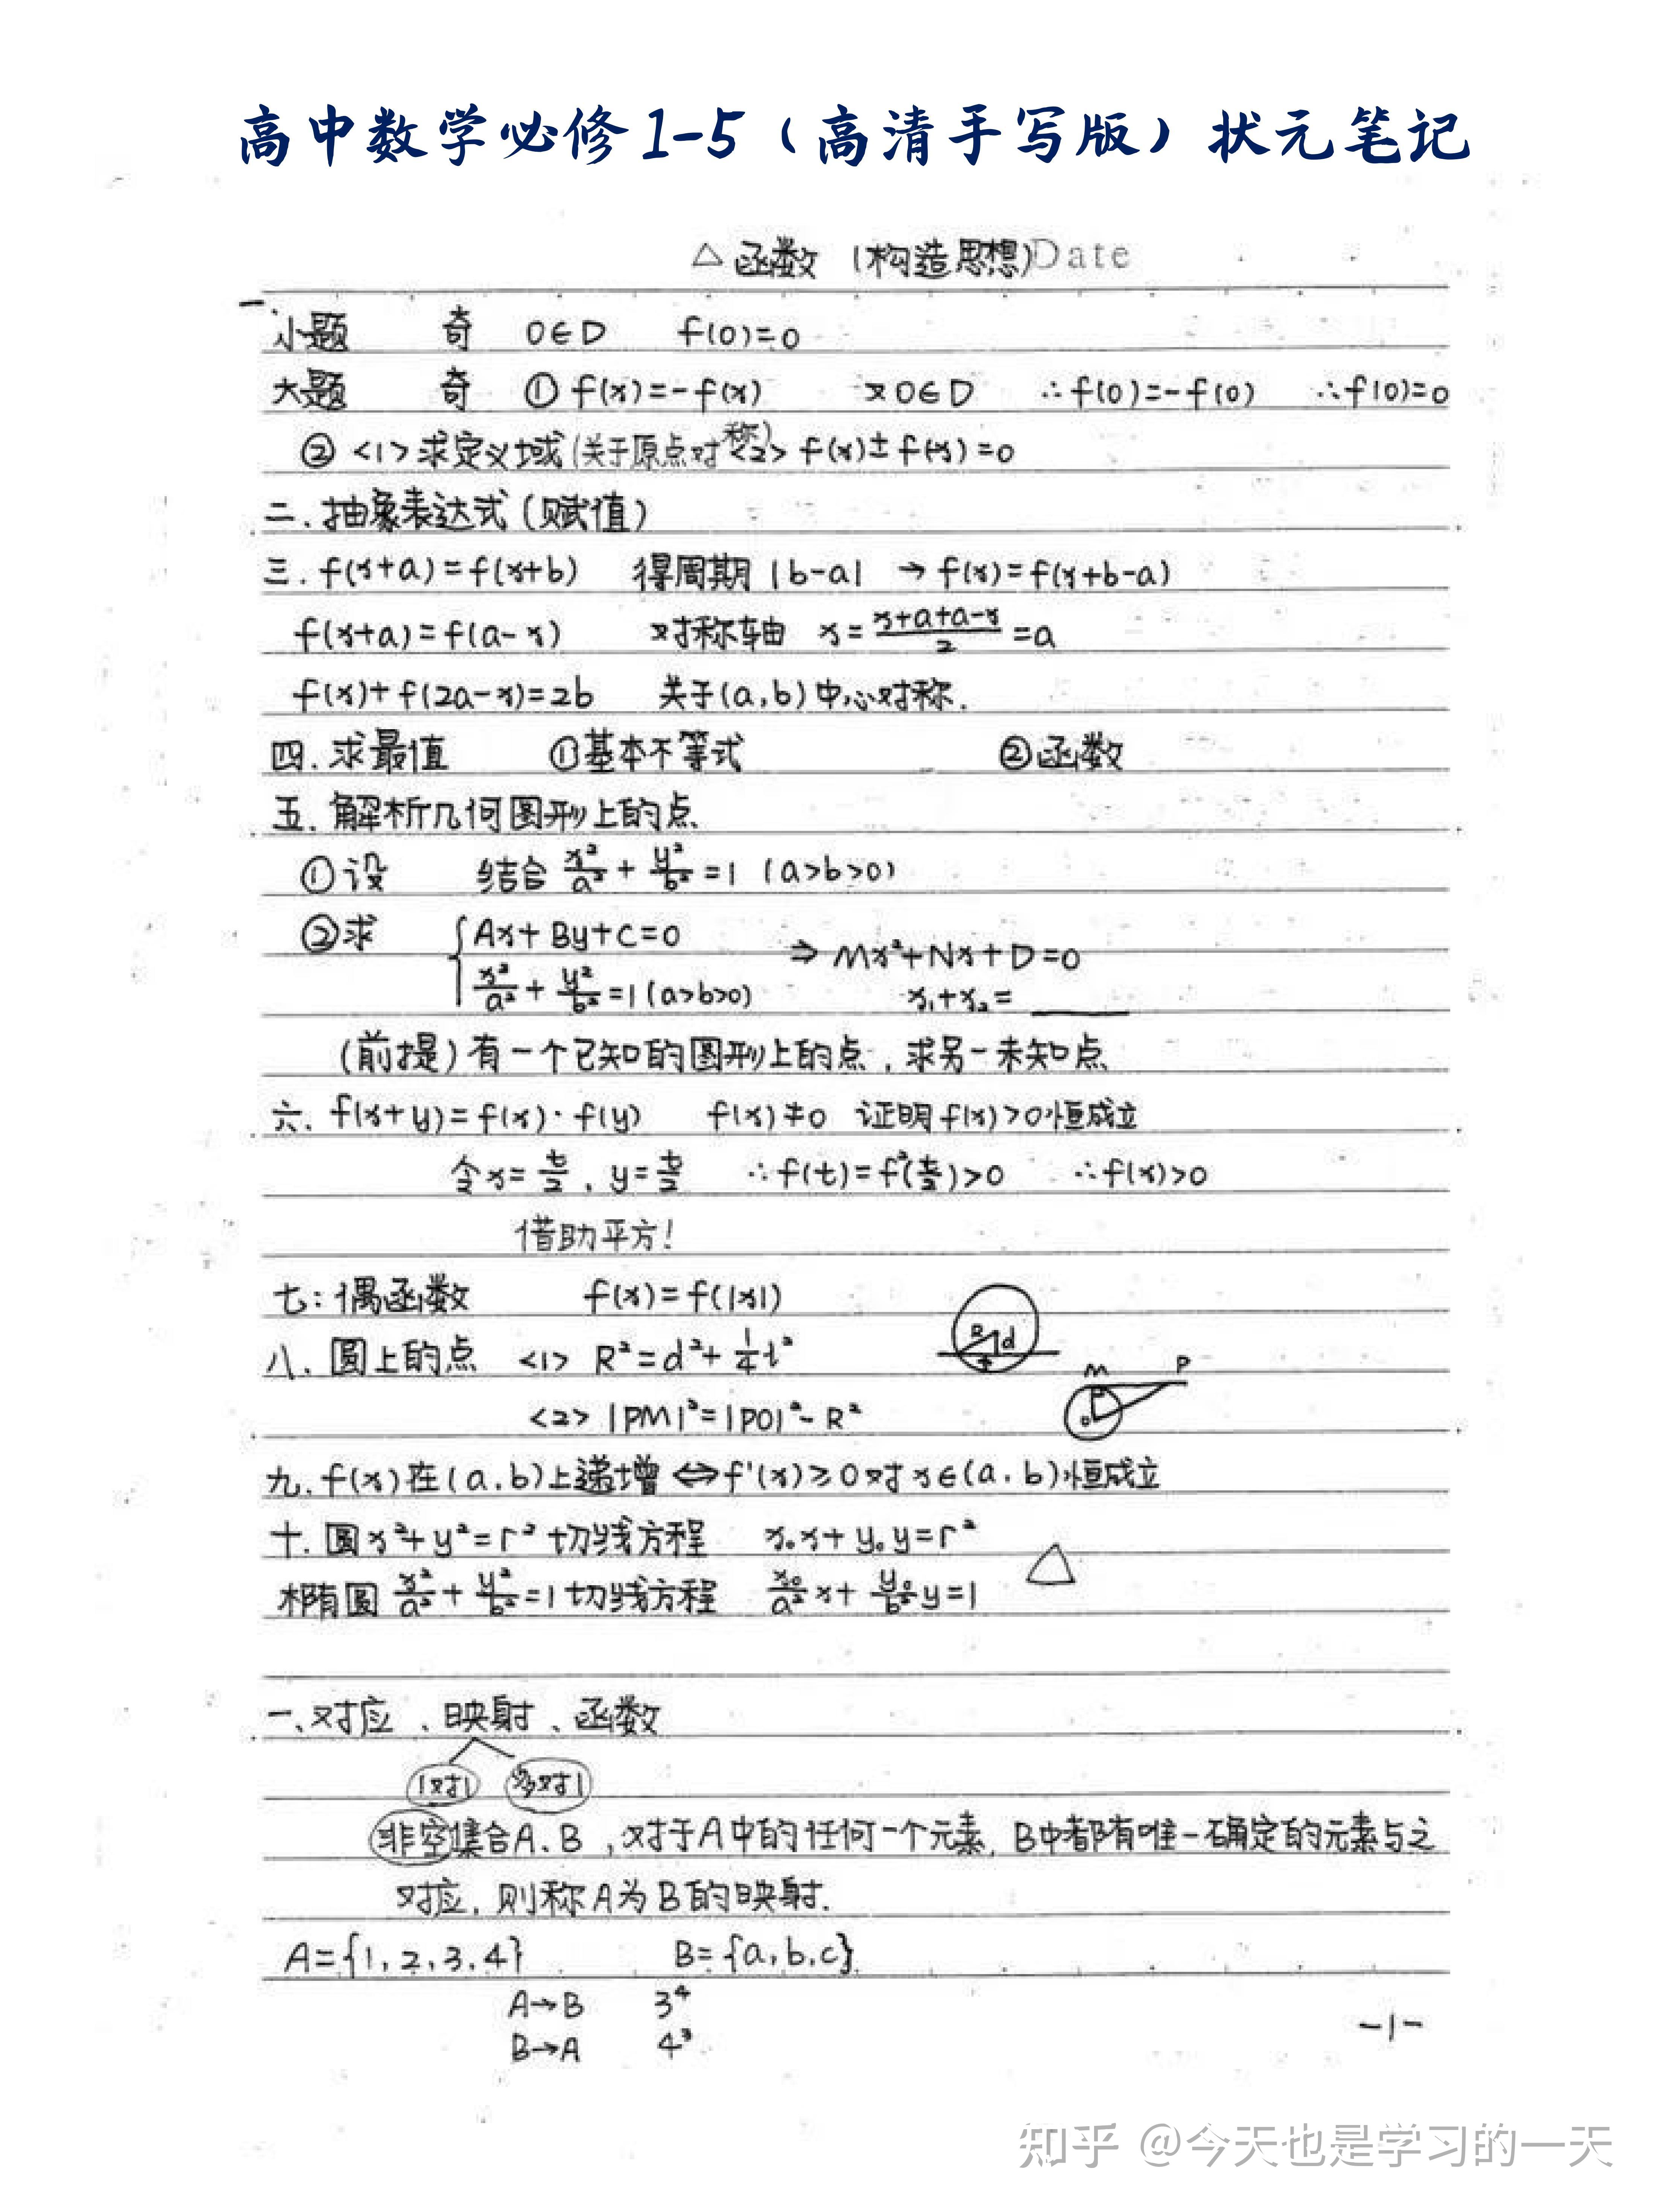 高中数学必修1-5（高清手写版）状元笔记
△ 函数 (构造思想) Date
一.
小题 奇 0∈D f(0)=0
大题 奇 ① f(x)=-f(x) 又0∈D ∴f(0)=-f(0) ∴f(0)=0
② <1>求定义域(关于原点对称) <2> f(x)±f(-x)=0
二.抽象表达式(赋值)
三.f(x+a)=f(x+b) 得周期|b-a| →f(x)=f(x+b-a)
f(x+a)=f(a-x) 对称轴 x=(x+a+a-x)/2=a
f(x)+f(2a-x)=2b 关于(a,b)中心对称.
四.求最值 ①基本不等式 ②函数
五.解析几何图形上的点
①设 结合 x²/a²+y²/b²=1 (a>b>0)
②求 {Ax+By+C=0
x²/a²+y²/b²=1(a>b>0) ⇒ Mx²+Nx+D=0
x₁+x₂=____
(前提)有一个已知的图形上的点,求另一未知点
六.f(x+y)=f(x)·f(y) f(x)≠0 证明f(x)>0恒成立
令x=t/2,y=t/2 ∴f(t)=f²(t/2)>0 ∴f(x)>0
借助平方!
七:偶函数 f(x)=f(|x|)
八.圆上的点 <1> R²=d²+1/4 l²
R d
l
<2> |PM|²=|PO|²-R²
M P
O
九.f(x)在(a,b)上递增⇔f'(x)≥0对x∈(a,b)恒成立
十.圆x²+y²=r²切线方程 x₀x+y₀y=r²
椭圆 x²/a²+y²/b²=1切线方程 x₀/a² x+y₀/b² y=1 △
一、对应、映射、函数
1对1 多对1
非空集合A、B,对于A中的任何一个元素,B中都有唯一确定的元素与之
对应,则称A为B的映射.
A={1,2,3,4} B={a,b,c}
A→B 3⁴
B→A 4³
-1-
知乎 @今天也是学习的一天